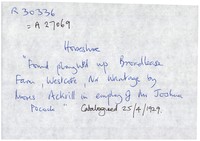 R 30336
= A 27069
Horseshoe
"Found ploughed up Broadleaze
Farm, Westcote, Nr Wantage by
Ackrill in employ of Mr Joshua
Catalogued 25/4/1929.